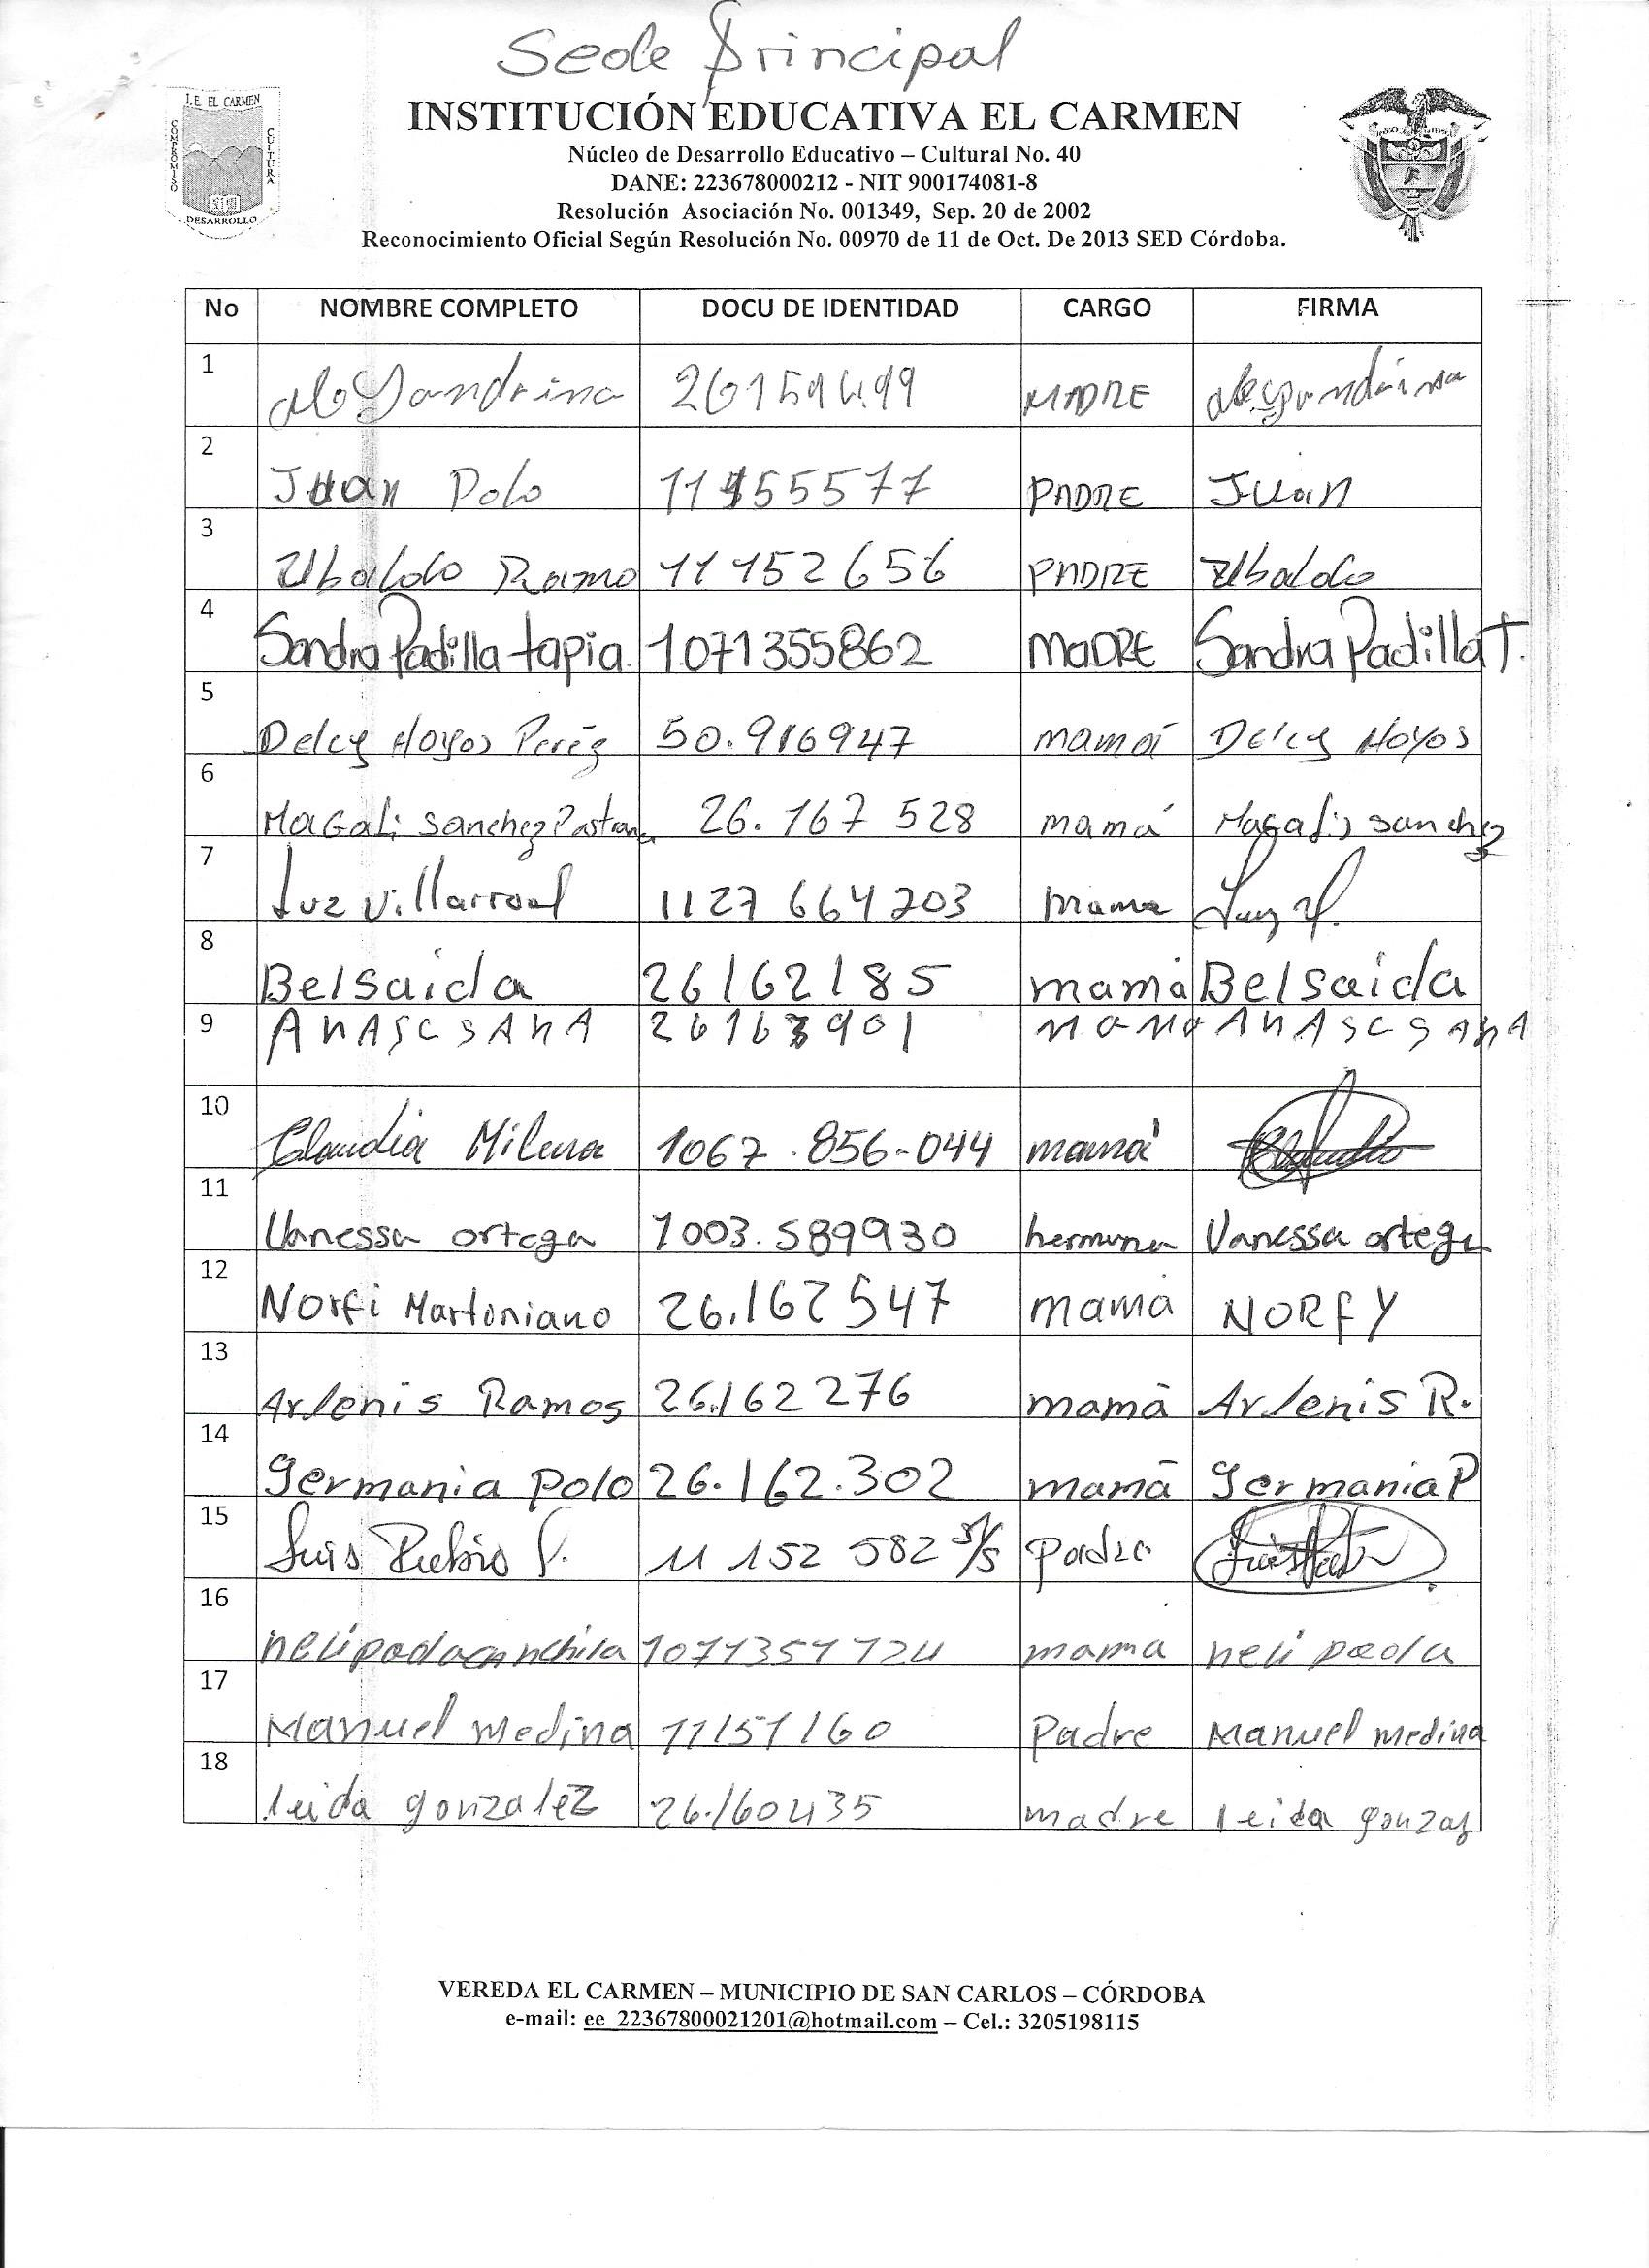 Sede Principal
I.E. EL CARMEN
COMPROMISO
CULTURA
DESARROLLO
INSTITUCIÓN EDUCATIVA EL CARMEN
Núcleo de Desarrollo Educativo – Cultural No. 40
DANE: 223678000212 - NIT 900174081-8
Resolución Asociación No. 001349, Sep. 20 de 2002
Reconocimiento Oficial Según Resolución No. 00970 de 11 de Oct. De 2013 SED Córdoba.
No NOMBRE COMPLETO DOCU DE IDENTIDAD CARGO FIRMA
1 26159499 MADRE
2 Juan Polo 11155577 PADRE Juan
3 Ubaldo Ramo 11152656 PADRE Ubaldo
4 Sandra Padilla tapia 1071355862 MADRE Sandra Padilla T.
5 Delcy Hoyos Peréz 50.916947 mamá Delcy Hoyos
6 MaGali Sanchez Pastrana 26.167 528 mamá Magalis Sanchez
7 Luz Villarroel 1127 664 203 mama Luz V.
8 Belsaida 26162185 mamá Belsaida
9 mama
10 Claudia Milena 1067.856-044 mamá
11 Vanessa ortega 1003.589930 hermana Vanessa ortega
12 Norfi Martoniano 26.162547 mamá NORFY
13 Arlenis Ramos 26.162276 mamá Arlenis R.
14 Germania Polo 26.162.302 mamá Germania P
15 Luis Rubio S. 11 152 582 S/S Padre
16 neli paola 1071351724 mama neli paola
17 Manuel medina 11151160 Padre Manuel medina
18 leida gonzalez 26.160435 madre leida gonzaz
VEREDA EL CARMEN – MUNICIPIO DE SAN CARLOS – CÓRDOBA
e-mail: ee_22367800021201@hotmail.com – Cel.: 3205198115